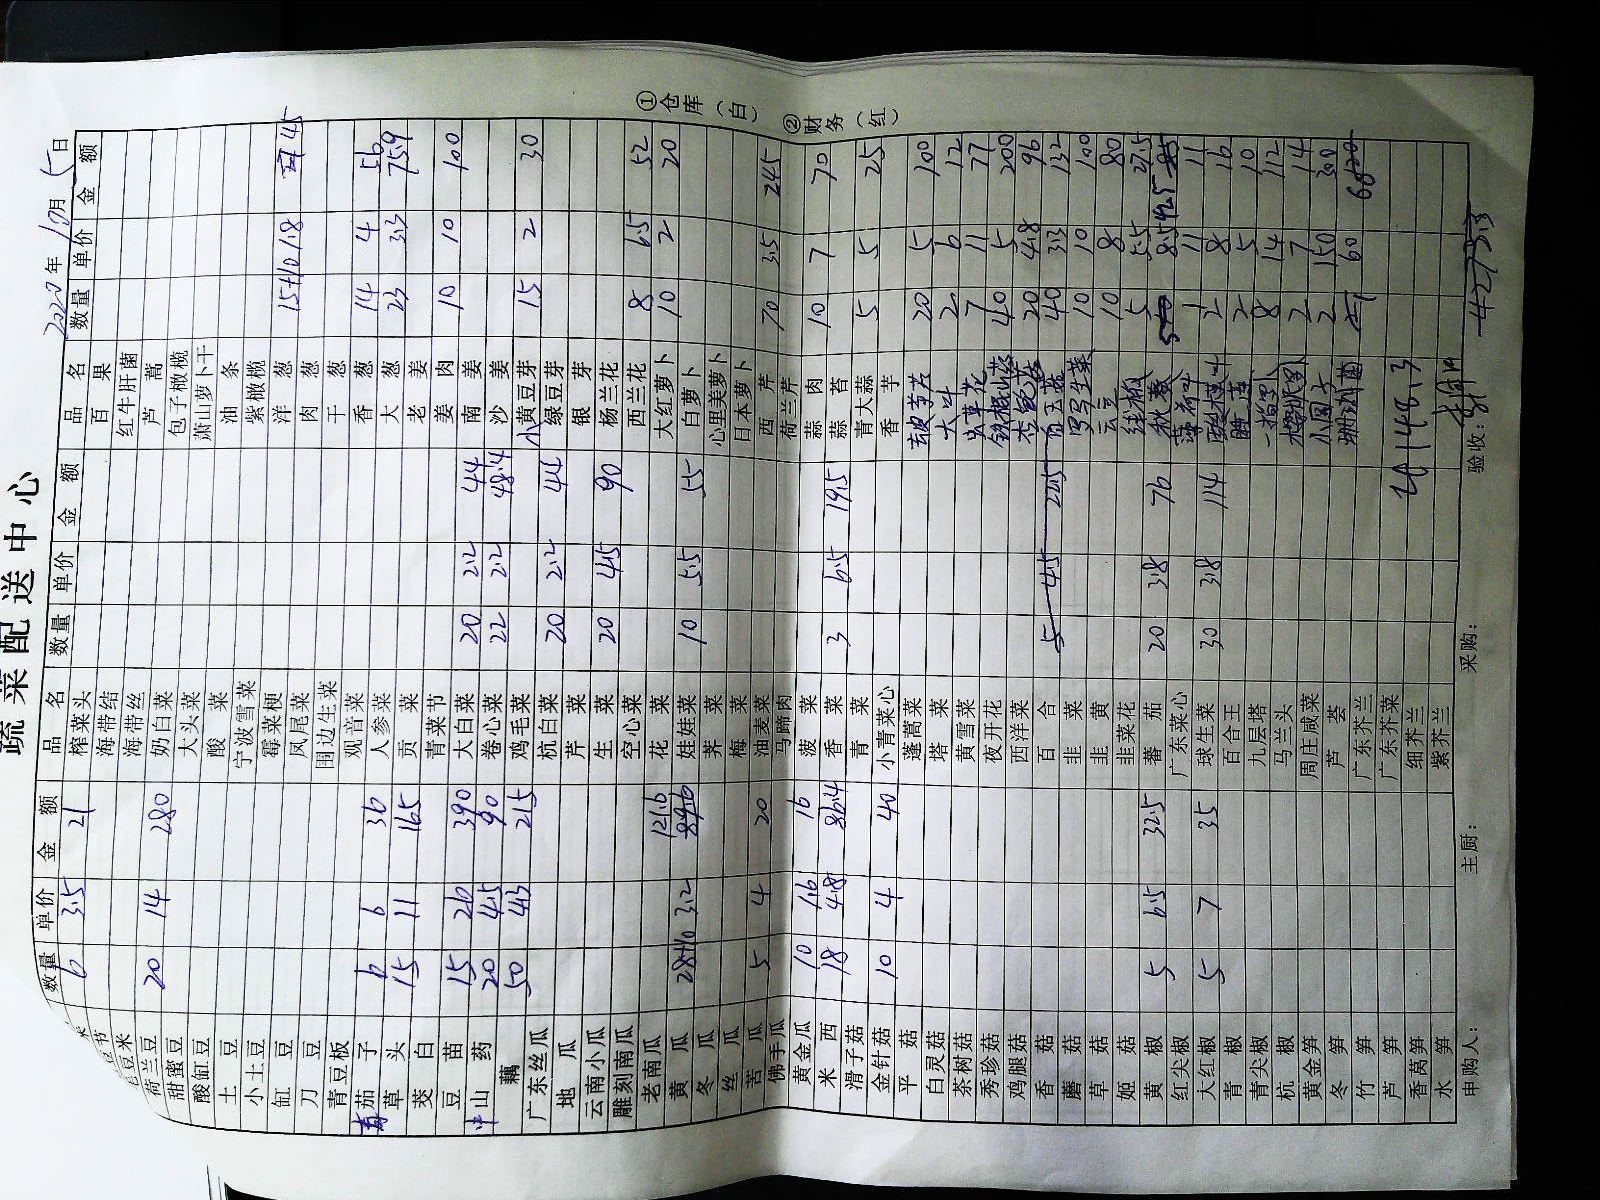 蔬菜配送中心
2020年10月5日
品名 数量 单价 金额 品名 数量 单价 金额
6 3.5 21 榨菜头 百果
海带结 红牛肝菌
海带丝 芦蒿
荷兰豆 20 14 280 奶白菜 包子橄榄
甜蜜豆 大头菜 萧山萝卜干
酸缸豆 酸菜 油条
土豆 宁波雪菜 紫橄榄
小土豆 霉菜梗 洋葱 15+10 1.8 45
缸豆 凤尾菜 肉葱
刀豆 围边生菜 干葱
青豆板 观音菜 香葱 14 4 56
茄子 6 6 36 人参菜 大葱 23 3.3 75.9
草头 15 11 165 贡菜 老姜
茭白 青菜节 姜肉 10 10 100
豆苗 15 26 390 大白菜 20 2.2 44 南姜
山药 20 4.5 90 卷心菜 22 2.2 48.4 沙姜
藕 50 4.3 215 鸡毛菜 小黄豆芽 15 2 30
广东丝瓜 杭白菜 20 2.2 44 绿豆芽
地瓜 芹菜 银芽
云南小瓜 生菜 20 4.5 90 杨兰花
雕刻南瓜 空心菜 西兰花 8 6.5 52
老南瓜 花菜 大红萝卜 10 2 20
黄瓜 28+10 3.2 121.6 娃娃菜 10 5.5 55 白萝卜
冬瓜 荠菜 心里美萝卜
丝瓜 梅菜 日本萝卜
苦瓜 5 4 20 油麦菜 西芹 70 3.5 245
佛手瓜 马蹄肉 荷兰芹
黄金瓜 10 1.6 16 菠菜 蒜肉 10 7 70
米西 18 4.8 86.4 香菜 3 6.5 19.5 蒜苔
滑子菇 青菜 青大蒜 5 5 25
金针菇 10 4 40 小青菜心 香芋
平菇 蓬蒿菜 20 5 100
白灵菇 塔菜 大叶 2 6 12
茶树菇 黄雪菜 7 11 77
秀珍菇 夜开花 铁棍山药 40 5 200
鸡腿菇 西洋菜 杏鲍菇 20 4.8 96
香菇 百合 5 4.5 22.5 白玉菇 40 3.3 132
蘑菇 韭菜 罗马生菜 10 10 100
草菇 韭黄 云豆 10 8 80
姬菇 韭菜花 线椒 5 5.5 27.5
黄椒 5 6.5 32.5 蕃茄 20 3.8 76 秋葵 5 8.5 42.5
红尖椒 广东菜心 薄荷叶 1 11 11
大红椒 5 7 35 球生菜 30 3.8 114 2 8 16
青椒 百合王 2 5 10
青尖椒 九层塔 8 14 112
杭椒 马兰头 2 7 14
黄金笋 周庄咸菜 小圆子 2 150 300
冬笋 芦荟 60
竹笋 广东芥兰
芦笋 广东芥菜 4148.3
香莴笋 细芥兰
水笋 紫芥兰
申购人： 主厨： 采购： 验收： 4273.3
①仓库（白） ②财务（红）